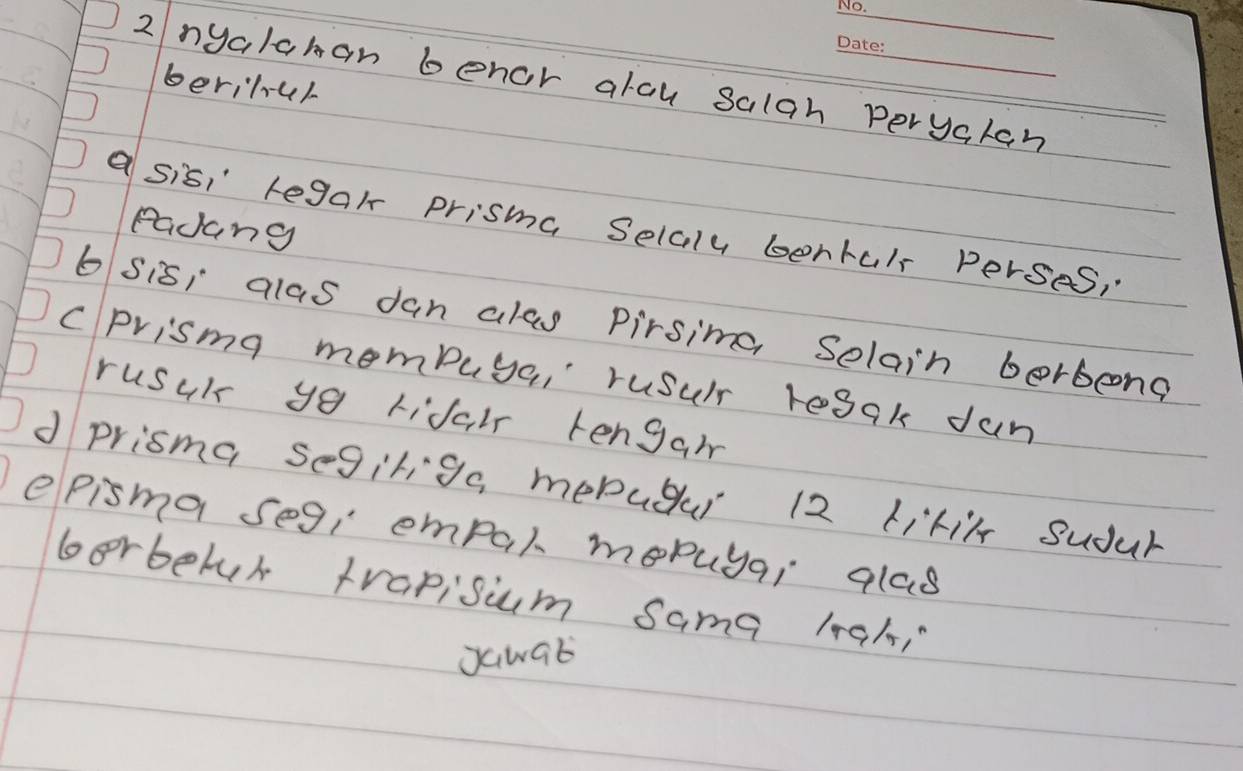 No.
Date:
2 nyatakan benar atau salah peryatan
berikut
a sisi tegak prisma selalu bentuk persesi
Padang
b sisi alas dan alas Pirsima selain berbeong
c prisma mempuyai rusuk tegak dan
rusuk yg tidak tengak
d prisma segitiga mepuyai 12 titik sudut
e pisma segi empat mepuyai alas
berbetuk trapisium sama kaki
jawab